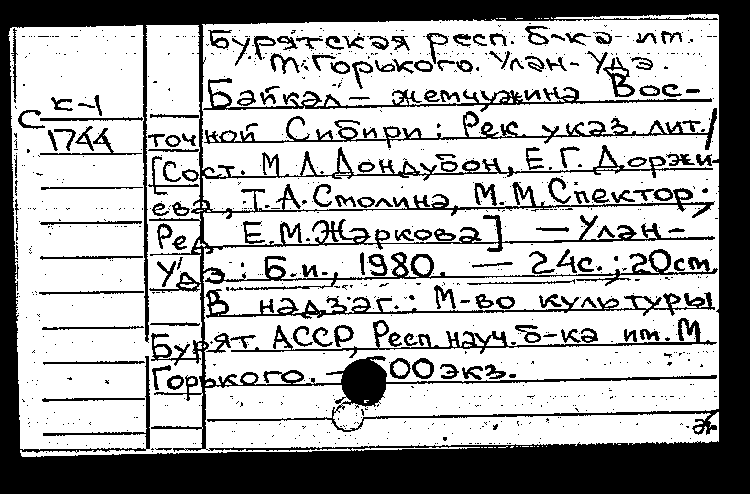 Бурятская респ. б-ка им.
М. Горького. Улан-Удэ.
Байкал — жемчужина Вос-
С к-1
1744
точной Сибири: Рек. указ. лит./
[Сост. М Л. Дондубон, Е. Г. Доржи-
ева, Т. А. Смолина, М. М. Спектор;
Ред. Е. М. Жаркова] — Улан-
Удэ: Б. и., 1980. — 24с.; 20см.
В надзаг.: М-во культуры
Бурят. АССР, Респ. науч. б-ка им. М.
Горького. — 00 экз.